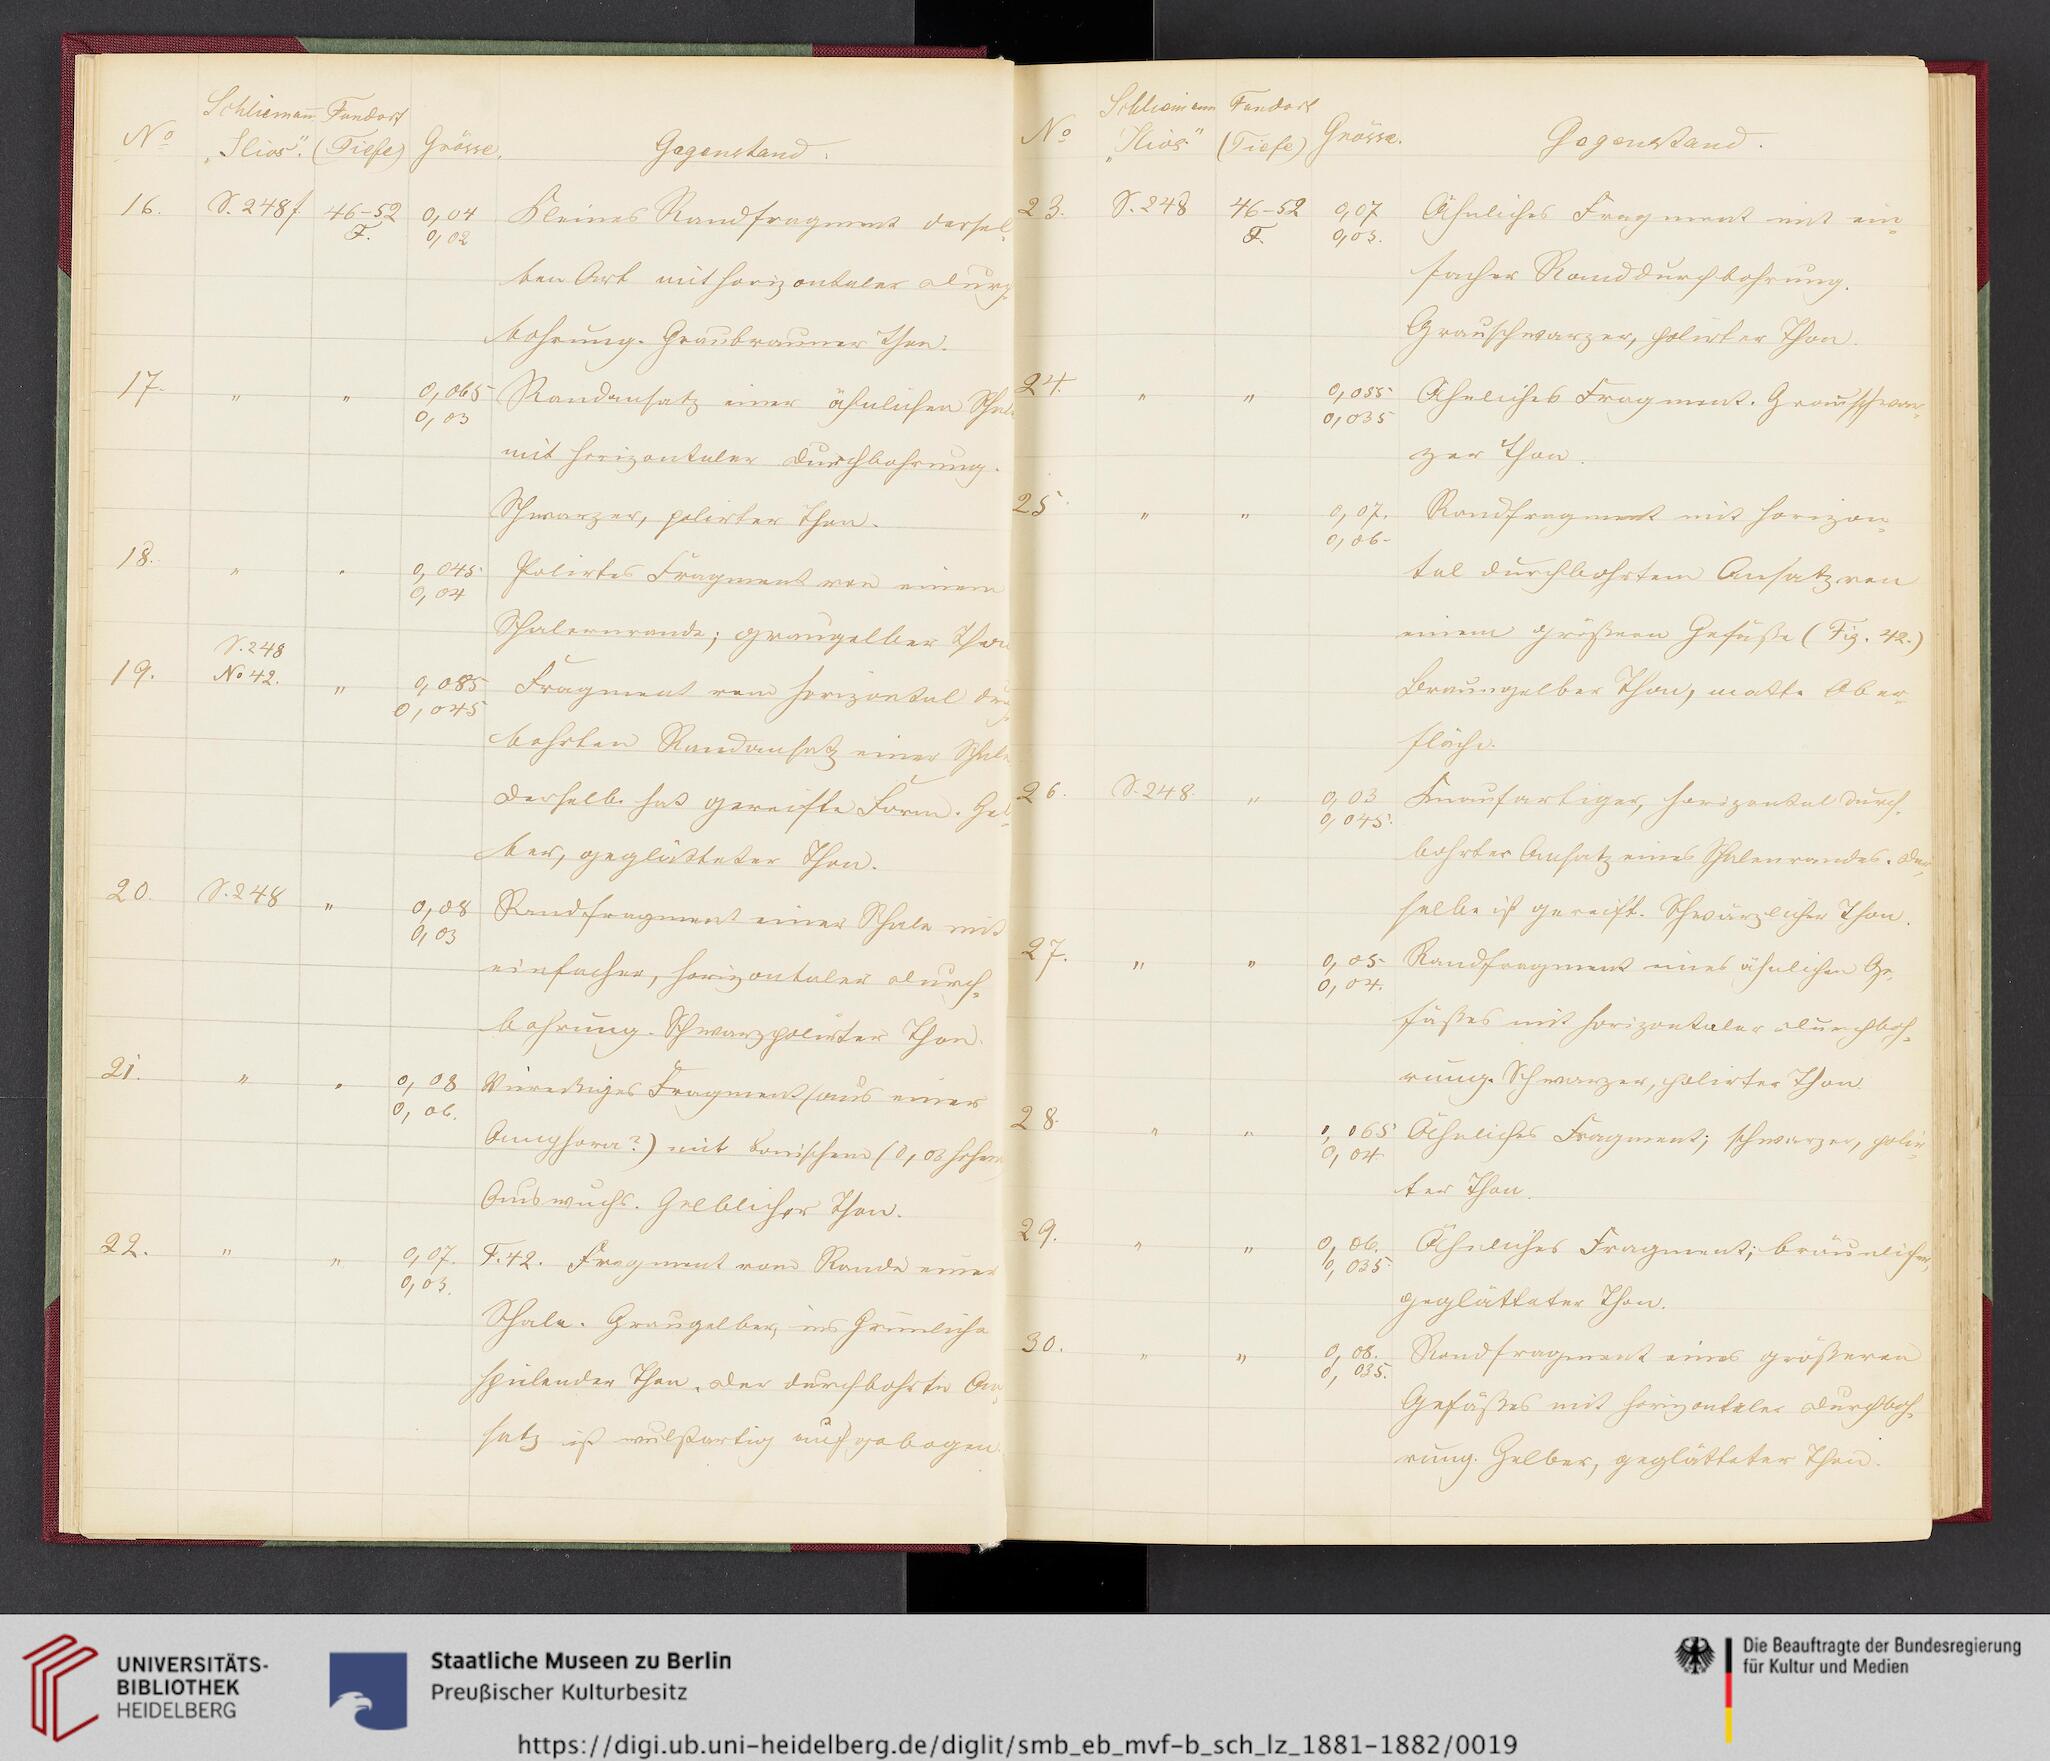 Schliemann Fundort
No „Ilios“. (Tiefe) Grösse. Gegenstand.
16. S. 248 f. 46-52 0,04 Kleines Randfragment dessel-
F. 0,02
ben Art mit horizontaler Durch-
bohrung. Graubrauner Thon.
17. " " 0,065 Randansatz einer ähnlichen Schale
0,03
mit horizontaler Durchbohrung.
Schwarzer, polirter Thon.
18. " " 0,045 Polirtes Fragment von einem
0,04
Schalenrande; graugelber Thon
S. 248
19. No 42. " 0,085 Fragment vom horizontal durch-
0,045
bohrten Randansatz einer Schale
derselbe hat gereifte Form. Gel-
ber, geglätteter Thon.
20. S. 248 " 0,08 Randfragment einer Schale mit
0,03
einfacher, horizontaler Durch-
bohrung. Schwarzpolirter Thon.
21. " " 0,08 Viereckiges Fragment (aus einer
0,06.
Amphora?) mit konischem (0,03 hohem)
Auswuchs. Gelblicher Thon.
22. " " 0,07. F. 42. Fragment vom Rande einer
0,03.
Schale. Graugelber, ins Grünliche
spielender Thon. Der durchbohrte An-
satz ist wulstartig aufgebogen.
Schliemann Fundort
No „Ilios“ (Tiefe) Grösse. Gegenstand.
23. S. 248 46-52 0,07 Ähnliches Fragment mit ein-
F. 0,03.
facher Randdurchbohrung.
Grauschwarzer, polirter Thon.
24. " " 0,055 Ähnliches Fragment. Grauschwar-
0,035
zer Thon.
25. " " 0,07. Randfragment mit horizon-
0,06-
tal durchbohrtem Ansatz von
einem größern Gefäße (Fig. 42.)
Braungelber Thon, matte Ober-
fläche.
26. S. 248. " 0,03 Knaufartiger, horizontal durch-
0,045.
bohrter Ansatz eines Schalenrandes. Der-
selbe ist gereift. Schwärzlicher Thon.
27. " " 0,05 Randfragment eines ähnlichen Ge-
0,04.
fäßes mit horizontaler Durchboh-
rung. Schwarzer, polirter Thon.
28. " " 0,065 Ähnliches Fragment; schwarzer, polir-
0,04
ter Thon.
29. " " 0,06. Ähnliches Fragment; bräunlicher,
0,035.
geglätteter Thon.
30. " " 0,08. Randfragment eines größeren
0,035.
Gefäßes mit horizontaler Durchboh-
rung. Gelber, geglätteter Thon.
UNIVERSITÄTS-
BIBLIOTHEK
HEIDELBERG
Staatliche Museen zu Berlin
Preußischer Kulturbesitz
Die Beauftragte der Bundesregierung
für Kultur und Medien
https://digi.ub.uni-heidelberg.de/diglit/smb_eb_mvf-b_sch_lz_1881-1882/0019